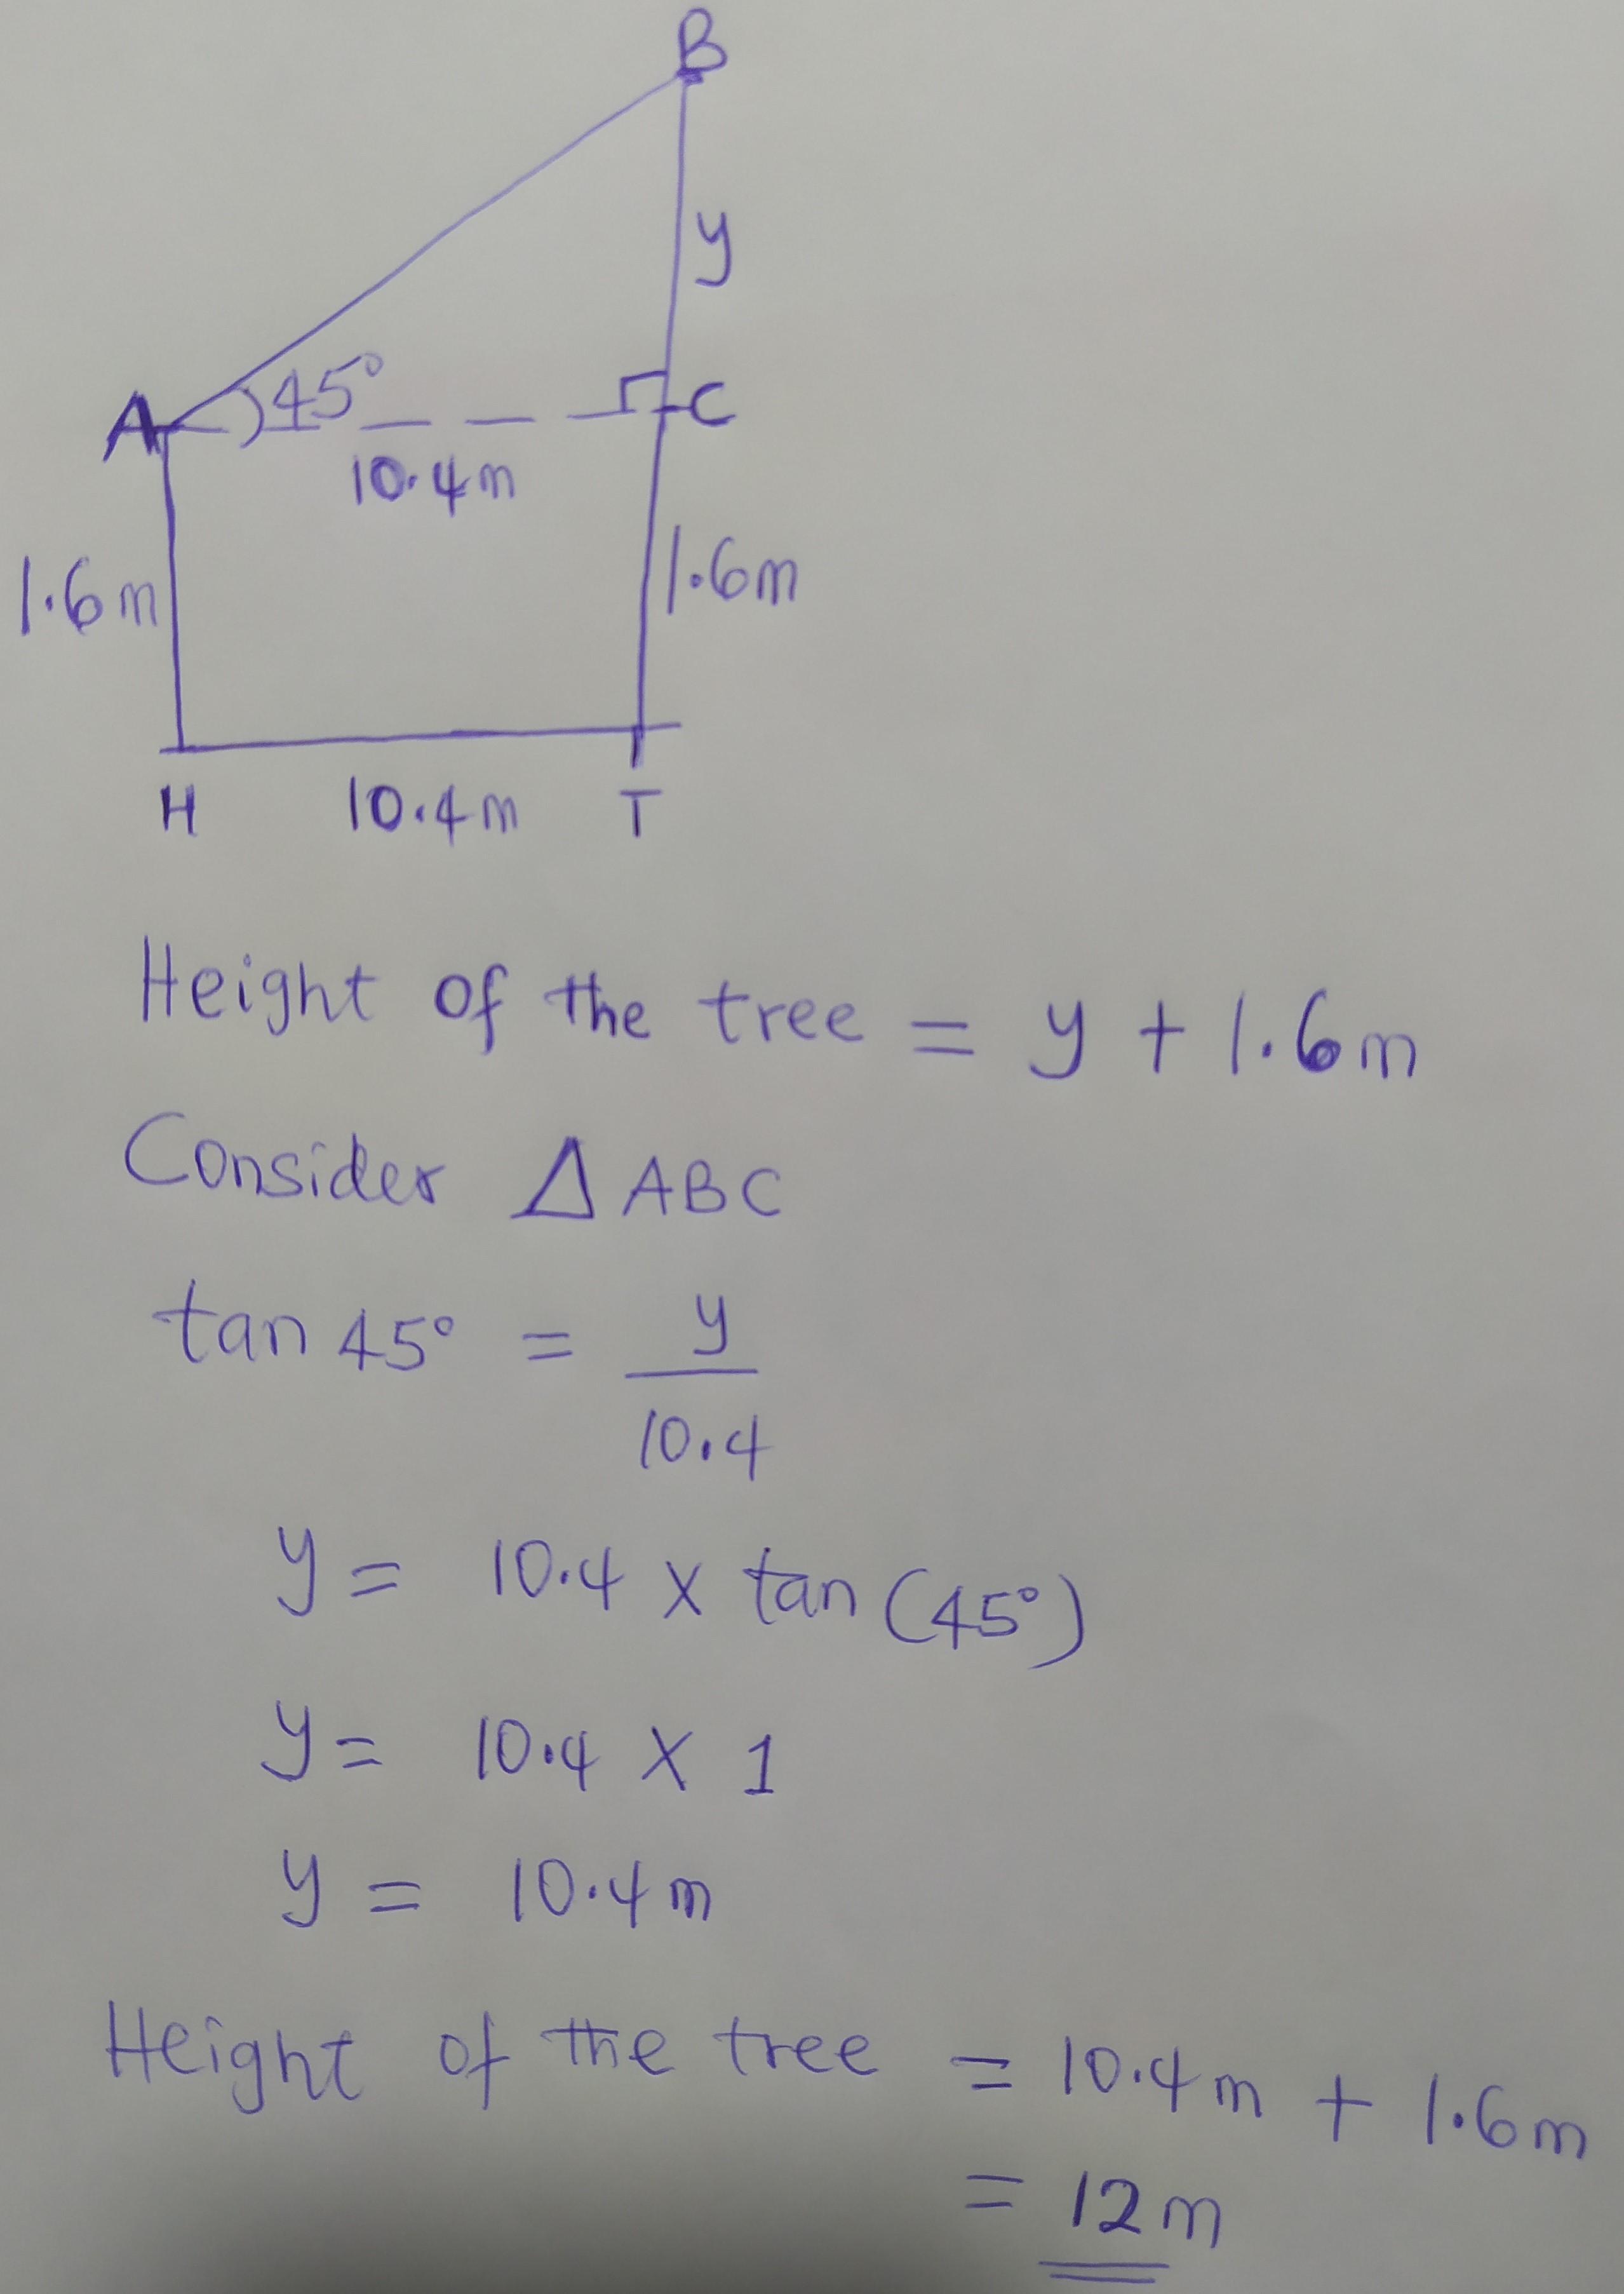 B
y
45°
A
C
10.4m
1.6m
1.6m
H 10.4m T
Height of the tree = y + 1.6m
Consider △ ABC
tan 45° = y
10.4
y = 10.4 × tan (45°)
y = 10.4 × 1
y = 10.4m
Height of the tree = 10.4m + 1.6m
= 12m